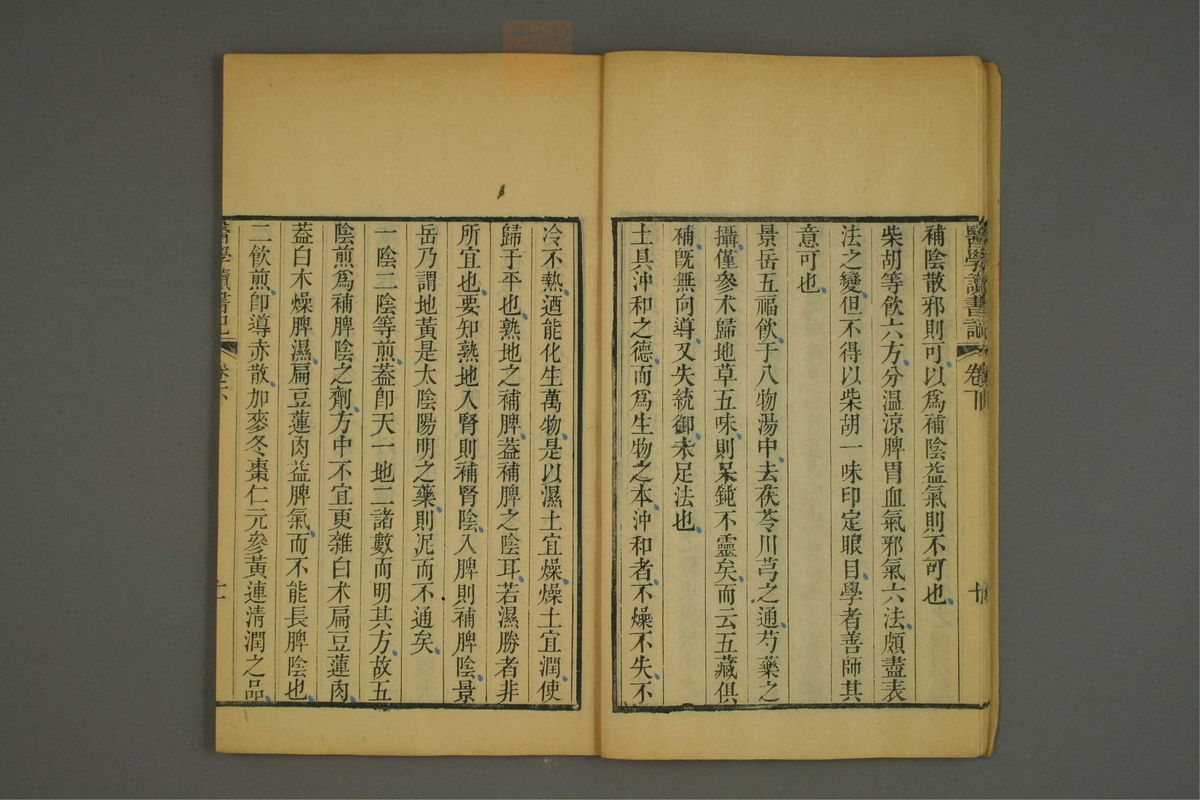 補陰散邪則可以爲補陰益氣則不可也
柴胡等飲六方分温涼脾胃血氣邪氣六法頗盡表
法之變但不得以柴胡一味印定眼目學者善師其
意可也
景岳五福飲于八物湯中去茯苓川芎之通芍藥之
攝僅參术歸地草五味則呆鈍不靈矣而云五藏俱
補旣無向導又失統御未足法也
土具沖和之德而爲生物之本沖和者不燥不失不
冷不熱迺能化生萬物是以濕土宜燥燥土宜潤使
歸于平也熟地之補脾葢補脾之陰耳若濕勝者非
所宜也要知熟地入腎則補腎陰入脾則補脾陰景
岳乃謂地黃是太陰陽明之藥則泥而不通矣
一陰二陰等煎葢卽天一地二諸數而明其方故五
陰煎爲補脾陰之劑方中不宜更雜白术扁豆蓮肉
葢白术燥脾濕扁豆蓮肉益脾氣而不能長脾陰也
二飲煎卽導赤散加麥冬棗仁元參黃連淸潤之品